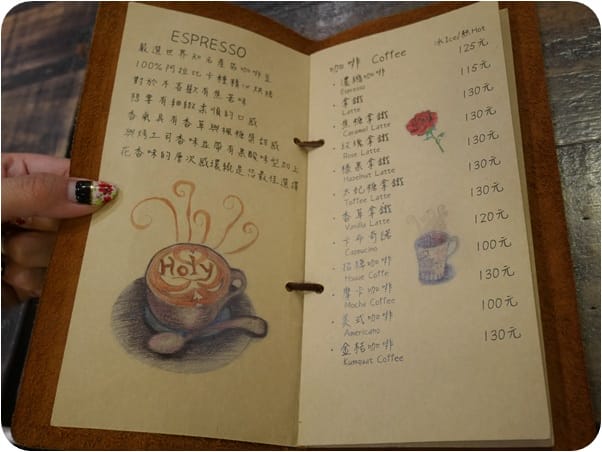 ESPRESSO
嚴選世界知名產區咖啡豆
100%阿拉比卡種精心烘焙
對於不喜歡有焦苦味
想要有細緻柔順的口感
香氣具有香草與楓糖果甜感
與烤土司香味並帶有果酸味型加上
花香味的層次感環繞是您最佳選擇
Holy
咖啡 Coffee 冰Ice/熱Hot
·濃縮咖啡 125元
Espresso
·拿鐵 115元
Latte
·焦糖拿鐵 130元
Caramel Latte
·玫瑰拿鐵 130元
Rose Latte
·榛果拿鐵 130元
Hazelnut Latte
·太妃糖拿鐵 130元
Toffee Latte
·香草拿鐵 130元
Vanilla Latte
·卡布奇諾 120元
Cappucino
·招牌咖啡 100元
House Coffe
·摩卡咖啡 130元
Mocha Coffee
·美式咖啡 100元
Americano
·金桔咖啡 130元
Kumquat Coffee